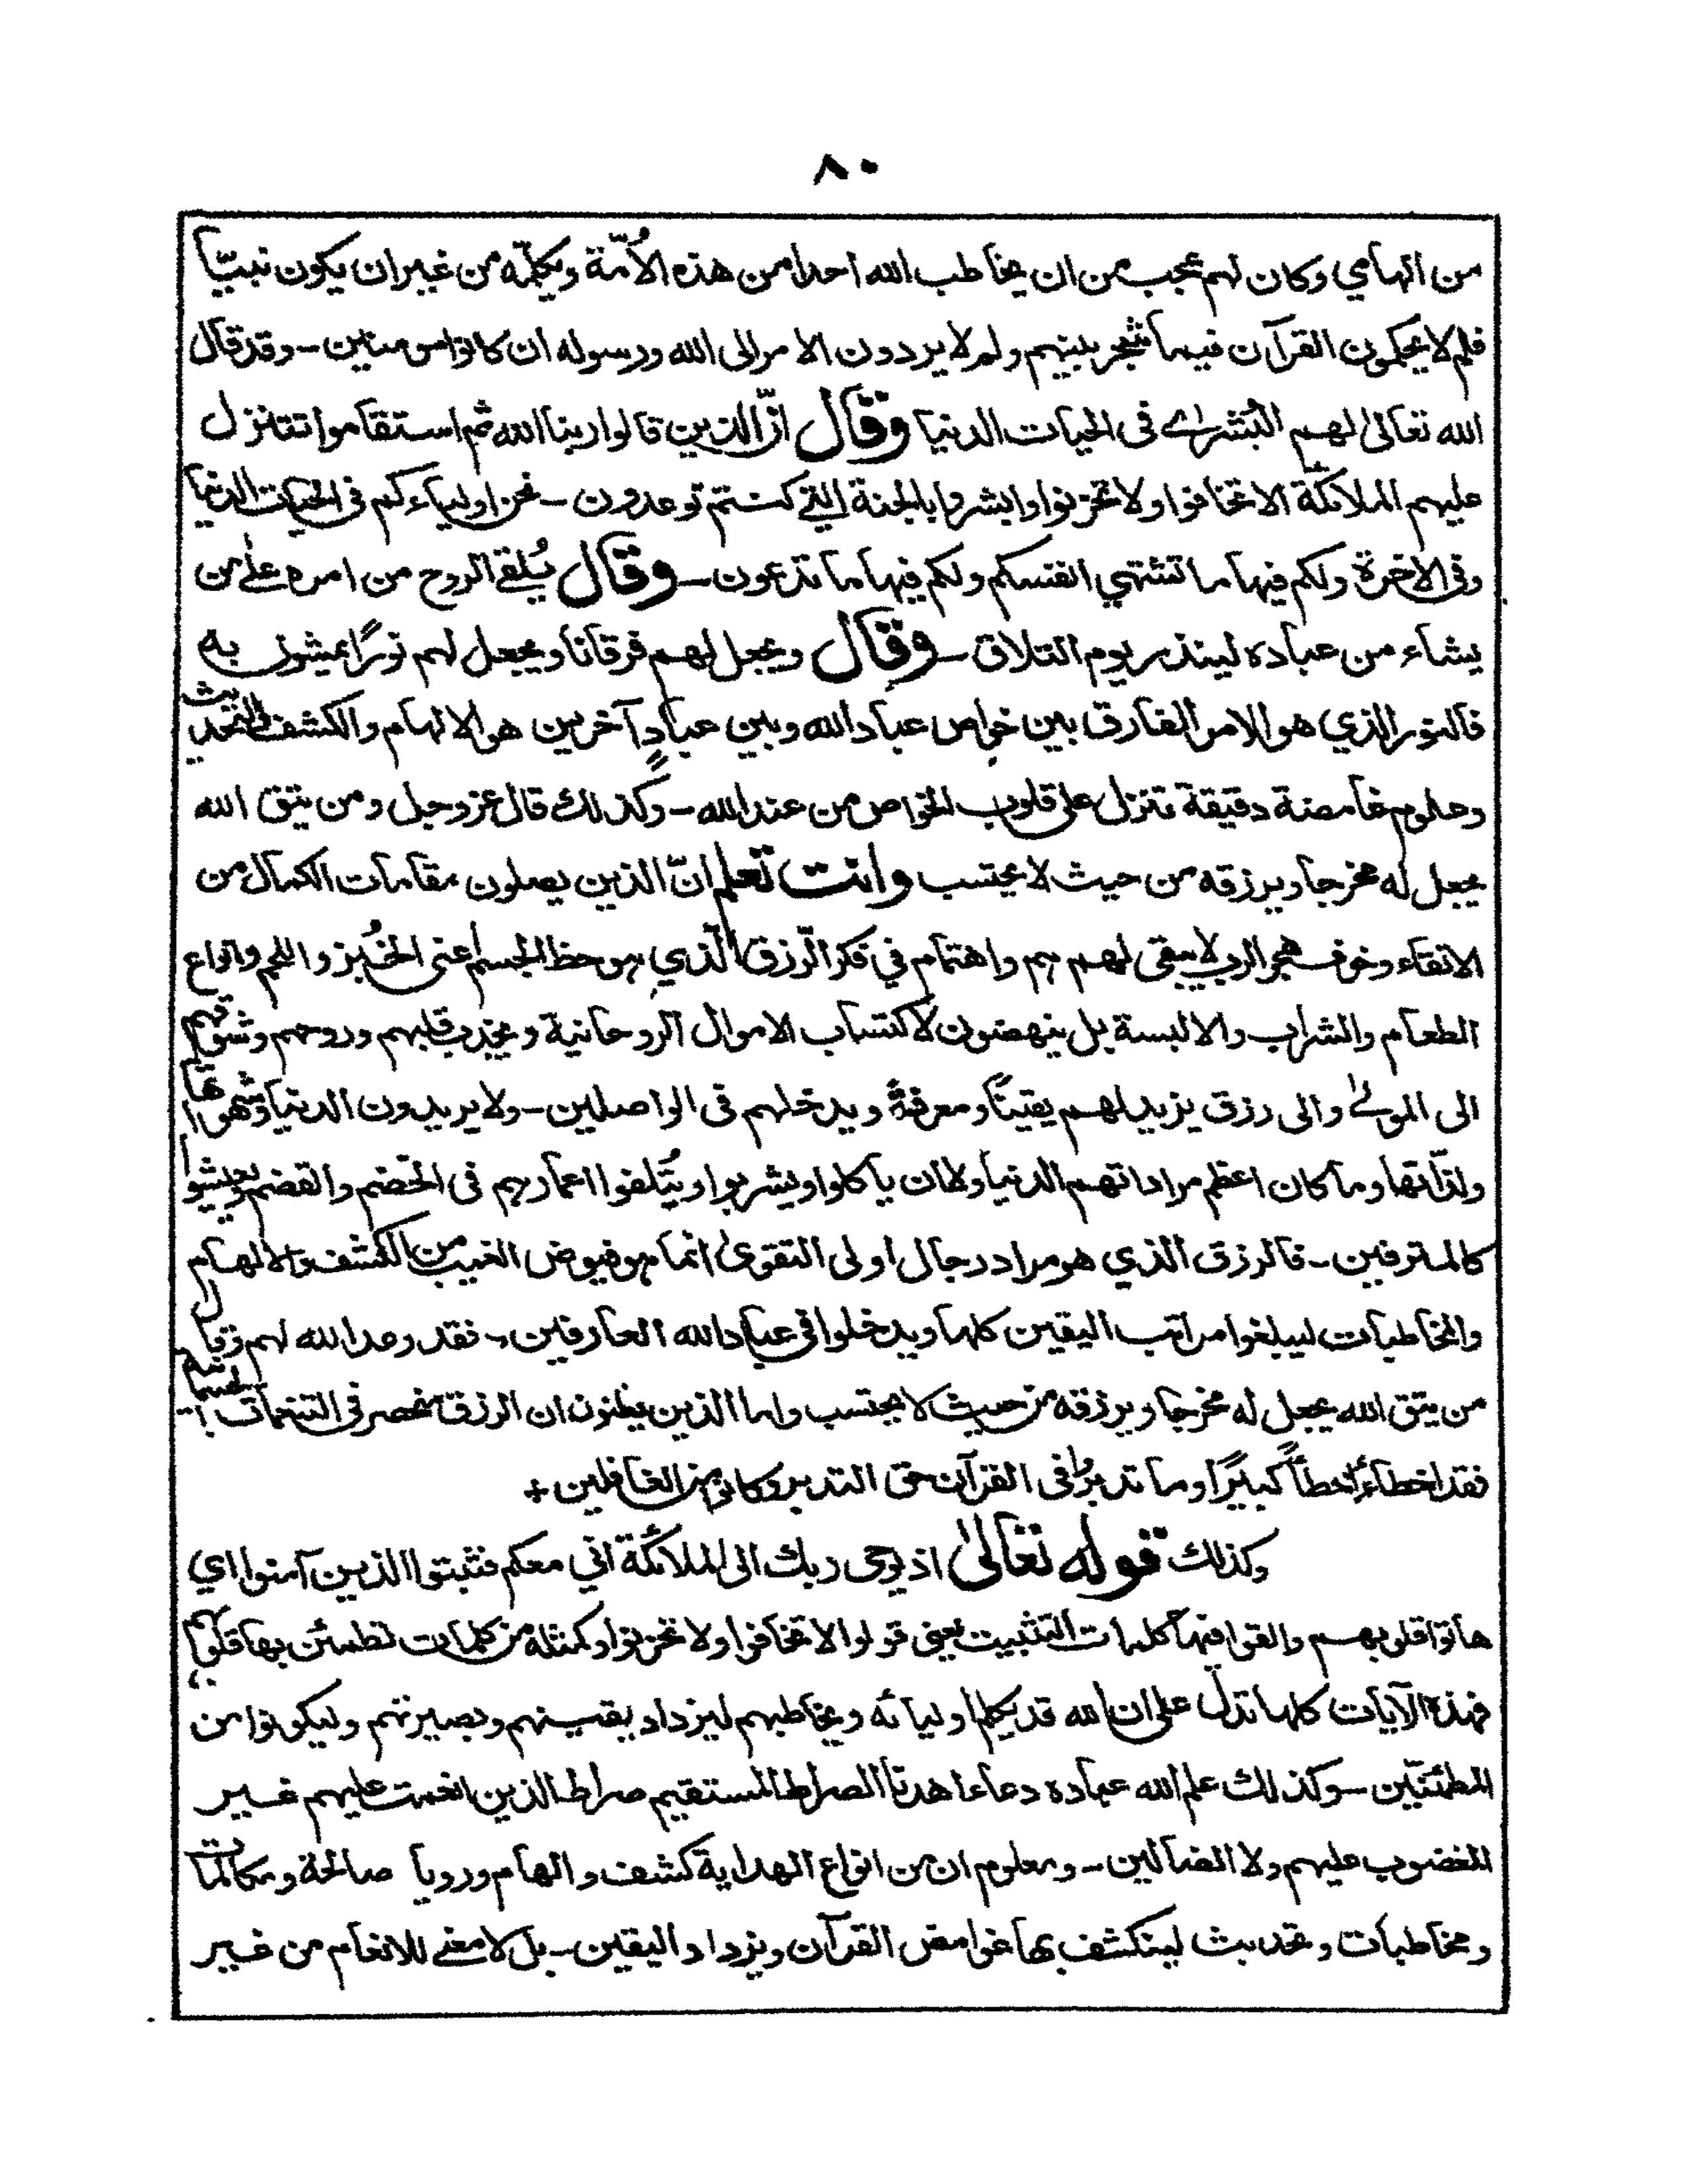 ٨٠
من الهامي وكان لهم عجب من ان يخاطب الله احدا من هذه الاُمّة ويكلّمه من غير ان يكون نبيّاً
فلم لا يحكمون القرآن فيما شجر بينهم ولم لا يردون الامر الى الله ورسوله ان كانوا مومنين - وقد قال
الله تعالىٰ لهم البُشرىٰ في الحيات الدنيا وقال انّ الذين قالوا ربنا الله ثم استقاموا تتنزل
عليهم الملائكة الا تخافوا ولا تحزنوا وابشروا بالجنة التي كنتم توعدون - نحن اولياءكم في الحيات الدنيا
وفي الاخرة ولكم فيها ما تشتهي انفسكم ولكم فيها ما تدعون - وقال يُلقي الروح من امره علىٰ من
يشاء من عباده لينذر يوم التلاق - وقال ويجعل لهم فرقانا ويجعل لهم نورًا يمشون به
فالنور الذي هو الامر الفارق بين خواص عباد الله وبين عبادٍ آخرين هو الالهام والكشف والتحديث
وعلوم غامضة دقيقة تنزل على قلوب الخواص من عند الله - وكذلك قال عز وجل ومن يتق الله
يجعل له مخرجا ويرزقه من حيث لا يحتسب وانت تعلم انّ الذين يصلون مقامات الكمال من
الاتقاء وخوف هجر الرب لا يبقى لهم هم واهتمام في فكر الرزق الّذي هو حظ الجسم اعني الخُبز واللحم وانواع
الطعام والشراب والالبسة بل ينهضون لاكتساب الاموال الروحانية ويجذب قلبهم وروحهم وشوقهم
الى المولىٰ والى رزق يزيد لهم يقينًا ومعرفةً ويدخلهم في الواصلين - ولا يريدون الدنيا وشهواتها
ولذّاتها وما كان اعظم مراداتهم الدنيا ولا ان ياكلوا ويشربوا ويُتلفوا اعمارهم في الخضم والقضم ويعيشوا
كالمترفين - فالرزق الذي هو مراد رجال اولى التقوىٰ انما هو فيوض الغيب من الكشف والالهام
والمخاطبات ليبلغوا مراتب اليقين كلها ويدخلوا في عباد الله العارفين - فقد وعد الله لهم وقال
من يتق الله يجعل له مخرجا ويرزقه من حيث لا يحتسب واما الذين يظنون ان الرزق منحصر في التنعمات الجسمانية
فقد اخطاءوا خطأً كبيرًا وما تدبروا في القرآن حق التدبر وكانوا من الغافلين +
وكذلك قوله تعالىٰ اذ يوحى ربك الى الملائكة اني معكم فثبتوا الذين آمنوا اي
هاتوا قلوبهم والقوا فيها كلمات التثبيت يعني قولوا لا تخافوا ولا تحزنوا وكمثله من كلمات تطمئن بها قلوبهم
فهذه الآيات كلها تدلّ على ان الله قد يكلم اوليائه ويخاطبهم ليزداد يقينهم وبصيرتهم وليكونوا من
المطمئنين - وكذلك علم الله عباده دعاء اهدنا الصراط المستقيم صراط الذين انعمت عليهم غير
المغضوب عليهم ولا الضالين - ومعلوم ان من انواع الهداية كشف والهام ورويا صالحة ومكالمات
ومخاطبات وتحديث لينكشف بها غوامض القرآن ويزداد اليقين - بل لا معنى للانعام من غير